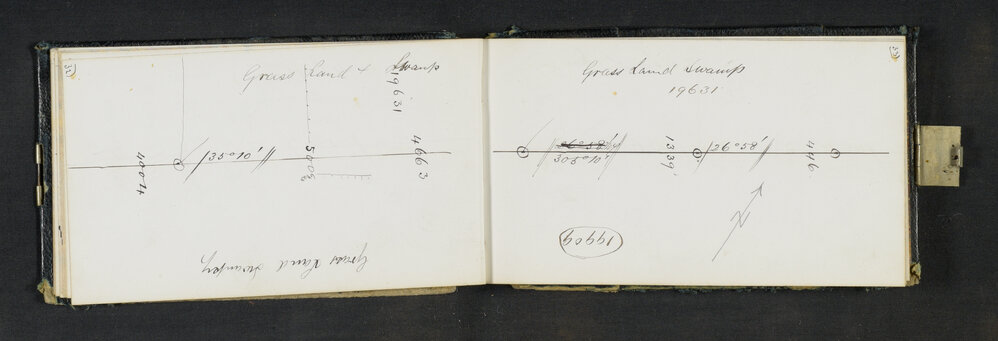 32
Grass Land & Swamp
19631
4004
135°10'
5008
4663
Grass Land Swampy
33
Grass Land Swamp
19631
26°58'
305°10'
1339
126°58'
446
19909
N